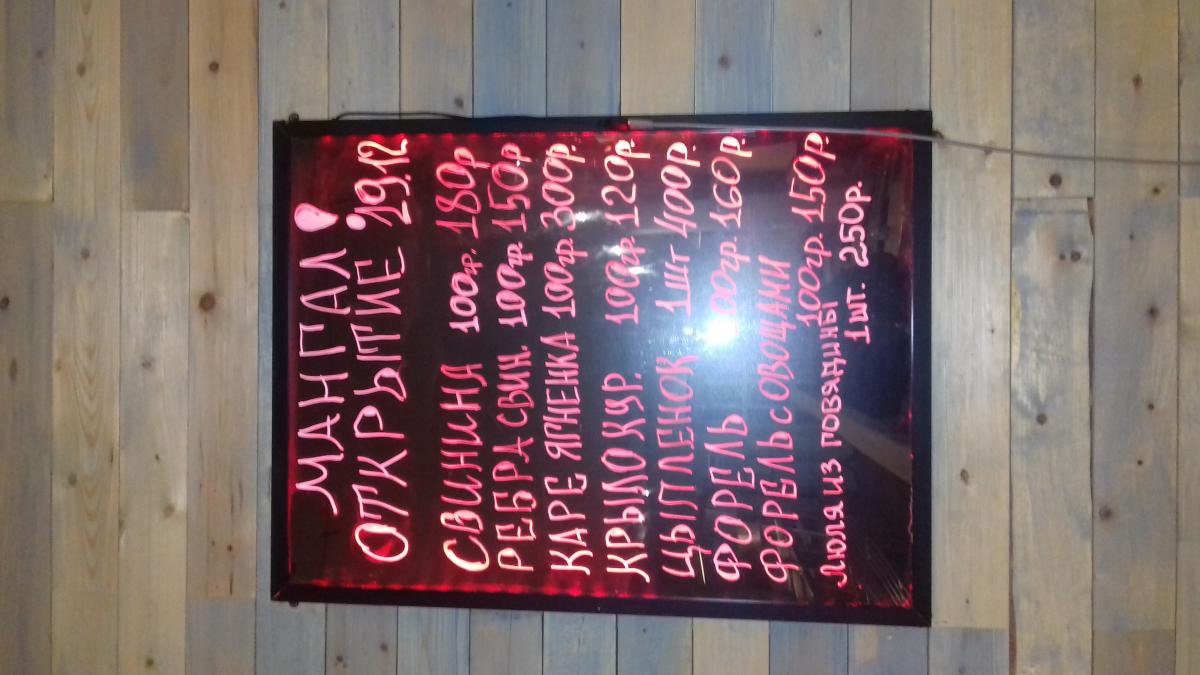 МАНГАЛ!
ОТКРЫТИЕ 19.12
СВИНИНА 100гр. 180р
РЕБРА СВИН. 100гр. 150р
КАРЕ ЯГНЕНКА 100гр. 300р.
КРЫЛО КУР. 100гр. 120р.
ЦЫПЛЕНОК 1шт 400р.
ФОРЕЛЬ 100гр. 160р.
ФОРЕЛЬ С ОВОЩАМИ
100гр. 150р.
Люля из говядины
1шт. 250р.